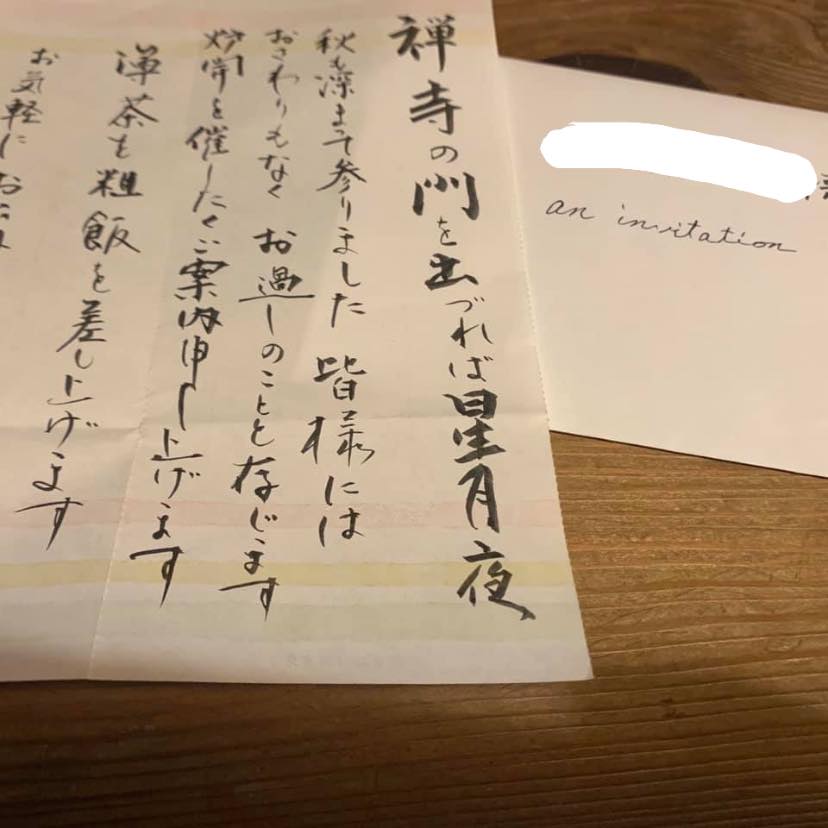 禅寺の門を出づれば星月夜
秋も深まって参りました 皆様には
おさわりもなく お過しのことと存じます
炉開を催したくご案内申し上げます
茶と粗飯を差し上げます
お気軽にお
an invitation